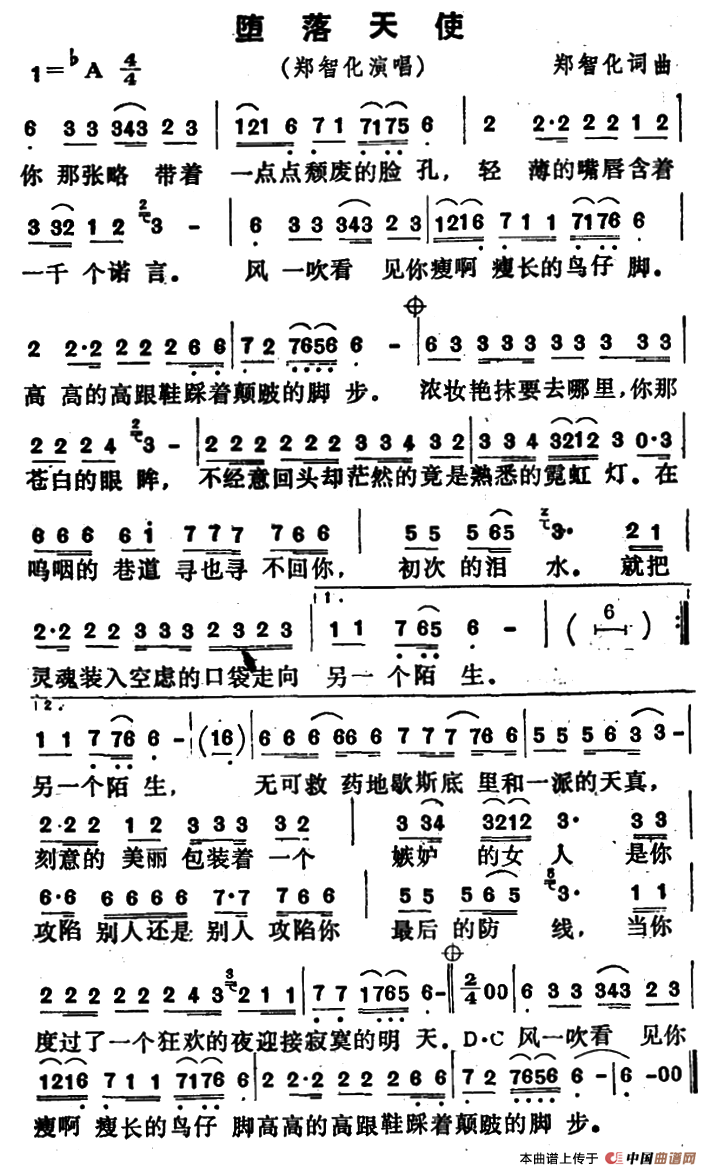 堕落天使
1=♭A 4/4 （郑智化演唱） 郑智化词曲
6 3 3 343 2 3 | 121 6 7 1 7175 6 | 2 2·2 2 2 1 2
你那张略带着一点点颓废的脸孔，轻薄的嘴唇含着
3 32 1 2 3 - | 6 3 3 343 2 3 | 1216 7 1 1 7176 6
一千个诺言。风一吹看见你瘦啊瘦长的鸟仔脚。
2 2·2 2 2 2 6 6 | 7 2 7656 6 - | 6 3 3 3 3 3 3 3 3 3 3
高高的高跟鞋踩着颠跛的脚步。浓妆艳抹要去哪里，你那
2 2 2 4 3 - | 2 2 2 2 2 2 3 3 4 3 2 | 3 3 4 3212 3 0·3
苍白的眼眸，不经意回头却茫然的竟是熟悉的霓虹灯。在
6 6 6 6 1 7 7 7 7 6 6 | 5 5 5 65 3· 2 1
呜咽的巷道寻也寻不回你，初次的泪水。就把
2·2 2 2 3 3 3 2 3 2 3 | 1. 1 1 7 65 6 - | ( 6 ) :
灵魂装入空虑的口袋走向另一个陌生。
2. 1 1 7 76 6 - (16) | 6 6 6 66 6 7 7 7 76 6 | 5 5 5 6 3 3 -
另一个陌生，无可救药地歇斯底里和一派的天真，
2·22 1 2 3 3 3 3 2 | 3 34 3212 3· 3 3
刻意的美丽包装着一个嫉妒的女人是你
6·6 6 6 6 6 7·7 7 6 6 | 5 5 5 6 5 3· 1 1
攻陷别人还是别人攻陷你最后的防线，当你
2 2 2 2 2 2 2 4 3 2 1 1 | 7 7 1765 6 - | 2/4 00 | 6 3 3 343 2 3
度过了一个狂欢的夜迎接寂寞的明天．D·C 风一吹看见你
1216 7 1 1 7176 6 | 2 2·2 2 2 2 6 6 | 7 2 7656 6 - | 6 -00
瘦啊瘦长的鸟仔脚高高的高跟鞋踩着颠跛的脚步。
本曲谱上传于 中国曲谱网